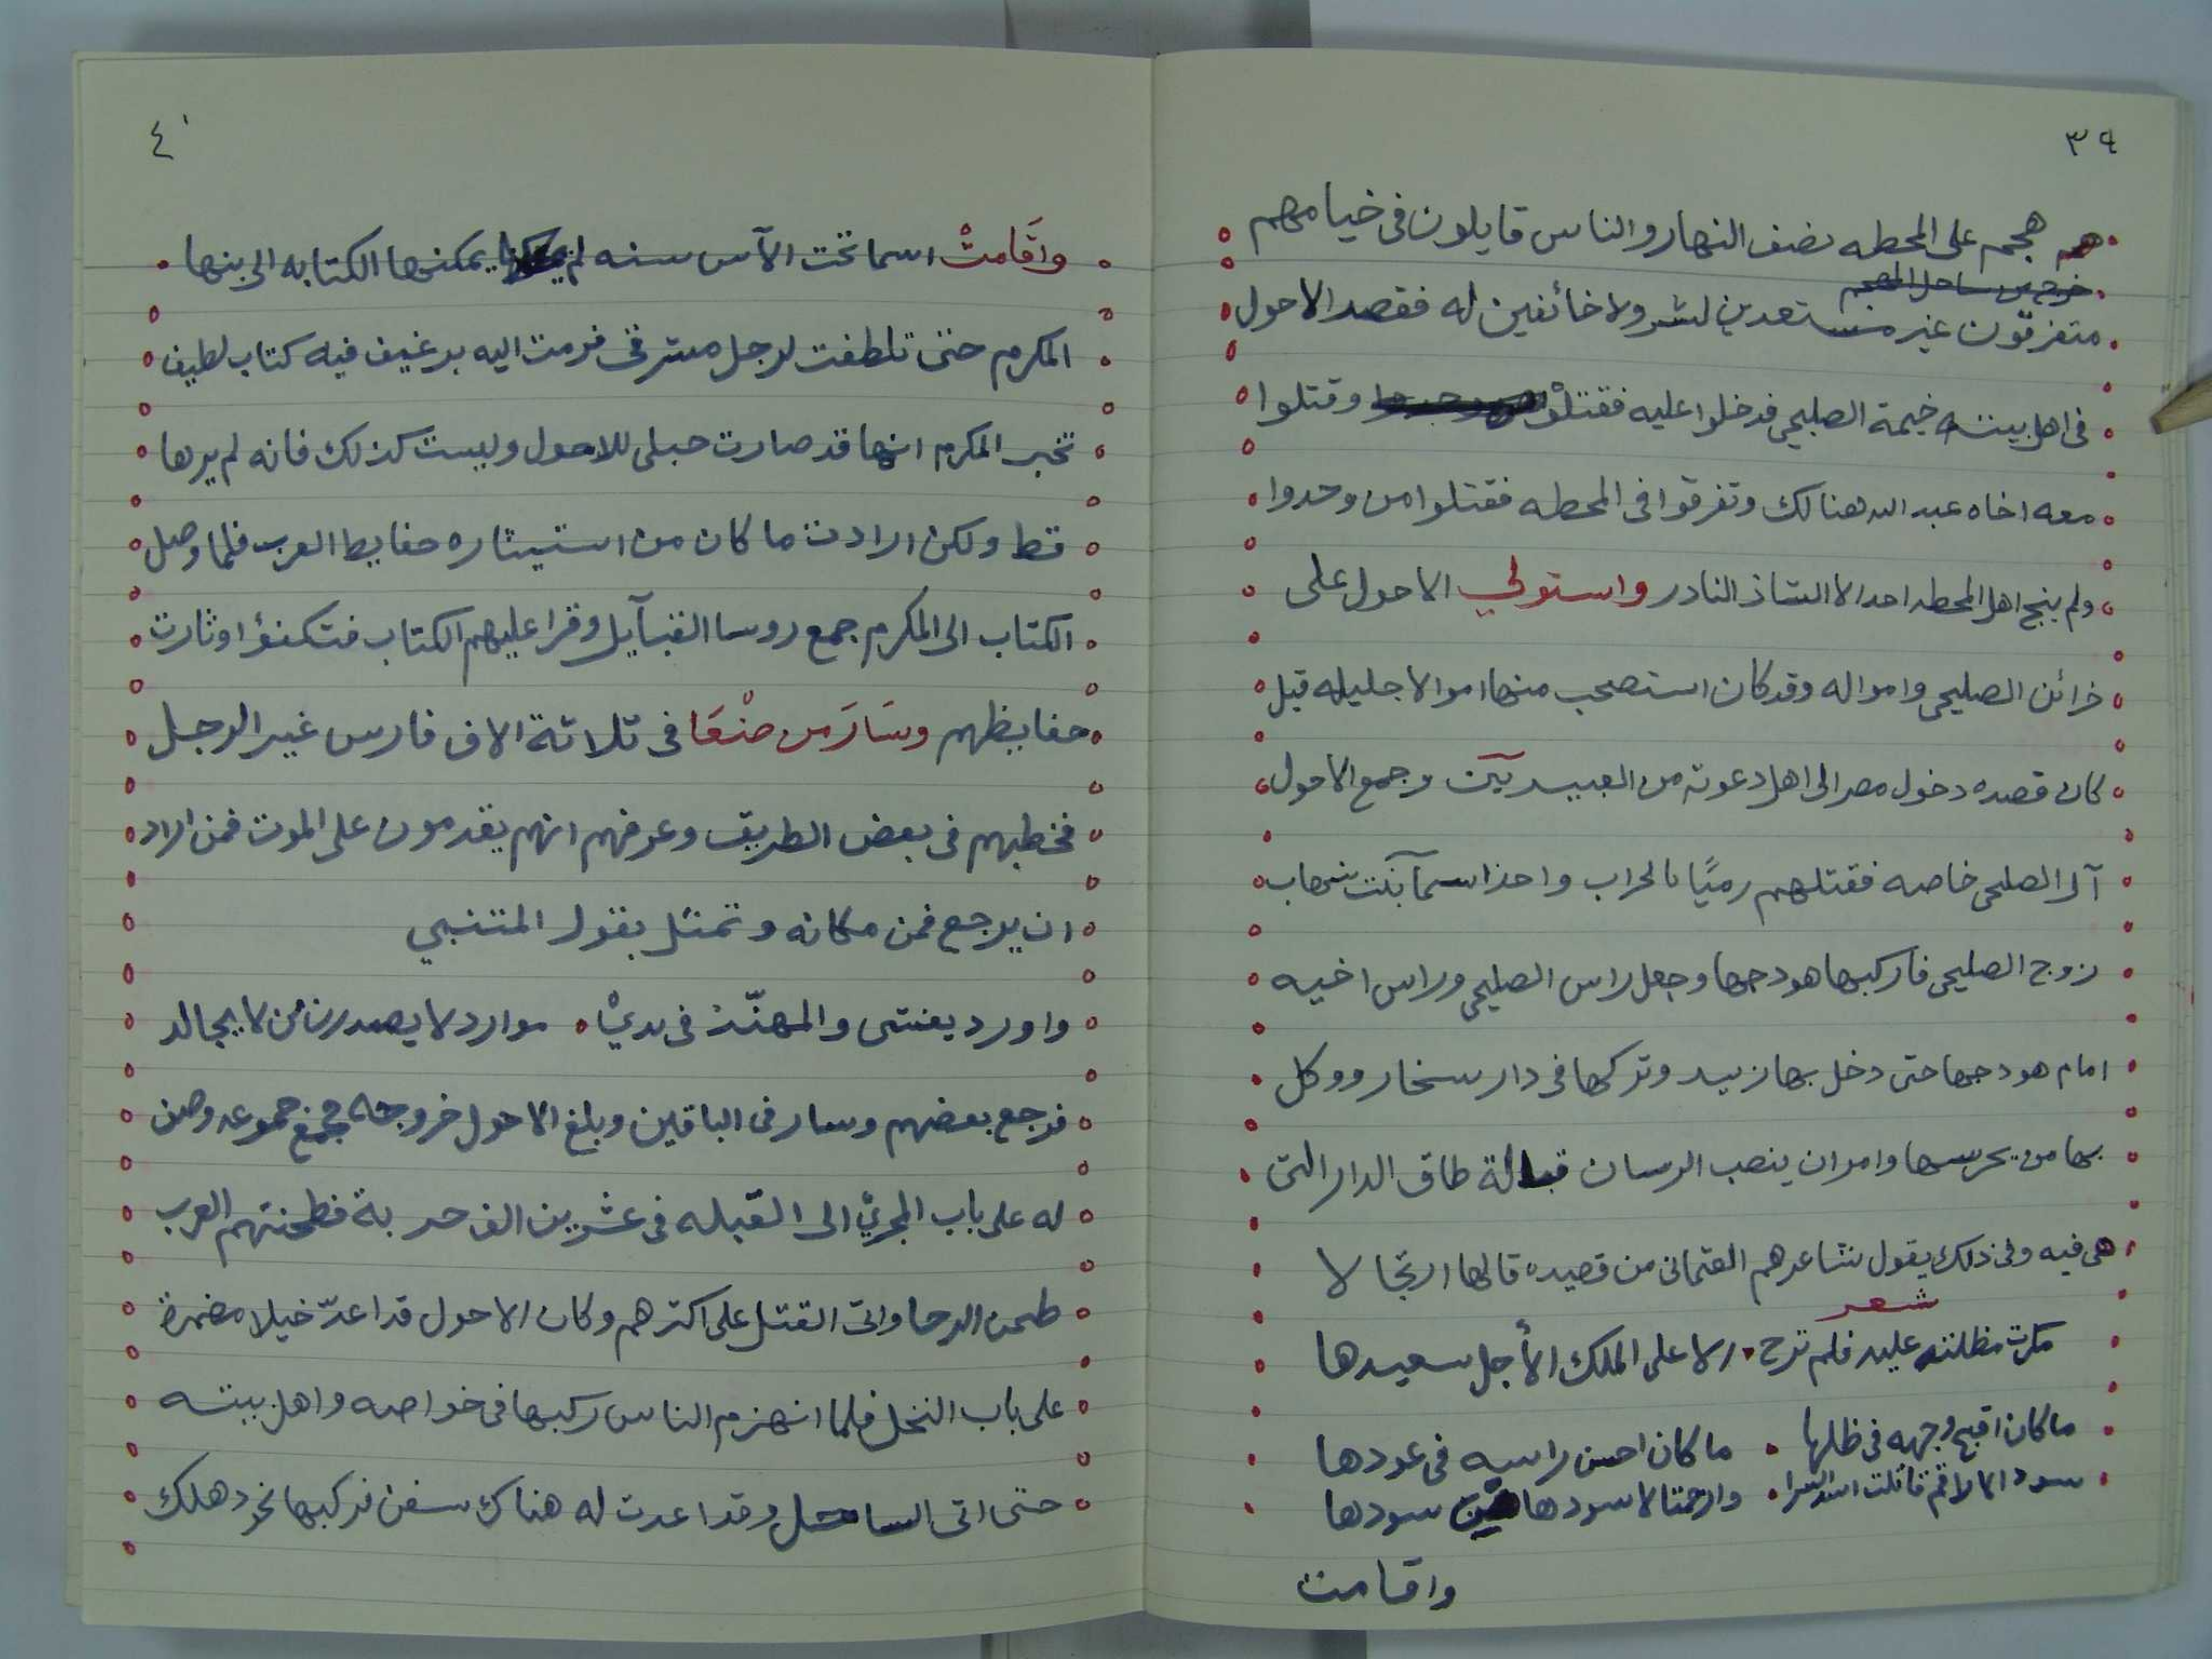 ٣٩
هجم على المحطه نصف النهار والناس قايلون فى خيامهم
خرج من ساحل المهجم
متفرقون غير مستعدين لشر ولا خائفين له فقصد الاحول
فى اهل بيته خيمة الصليحي فدخلوا عليه فقتلوْا وقتلوا
معه اخاه عبد الله هنالك وتفرقوا فى المحطه فقتلوا من وجدوا
ولم ينج اهل المحطه احد الا الشاذ النادر واستولي الاحول على
خزائن الصليحى وامواله وقد كان استصحب منها اموالا جليله قبل
كان قصده دخول مصر الى اهل دعوته من العبيديين وجمع الاحول
آل الصليحى خاصه فقتلهم رميًا بالحراب واخذ اسمآ بنت شهاب
زوج الصليحى فاركبها هودجها وجعل راس الصليحى وراس اخيه
امام هودجها حتى دخل بها زبيد وتركها فى دار سخار ووكل
بها من يحرسها وامر ان ينصب الرسان قبالة طاق الدار التى
هى فيه وفى ذلك يقول شاعرهم العثمانى من قصيده قالها ارتجالا
شعر
بكرت مظلته عليه فلم ترح ٠ الا على الملك الأجل سعيدها
ما كان اقبح وجهه فى ظلها ٠ ما كان احسن راسه فى عودها
سود الاراقم قاتلت اسد الشرا ٠ وارحمتا لاسودها من سودها
واقامت
٤٠
واقَامتْ اسما تحت الآسر سنه لم يمكنها الكتابه الى بنها
المكرم حتى تلطفت لرجل مشرقى فرمت اليه برغيف فيه كتاب لطيف
تخبر المكرم انها قد صارت حبلى للاحول وليست كذلك فانه لم يرها
قط ولكن ارادت ما كان من استيثاره حفايظ العرب فلما وصل
الكتاب الى المكرم جمع روسا القبآيل وقرا عليهم الكتاب فتكنؤا وثارت
حفايظهم وسَارَ من صنْعَا فى ثلاثة الاف فارس غير الرجل
فخطبهم فى بعض الطريق وعرفهم انهم يقدمون على الموت فمن اراد
ان يرجع فمن مكانه وتمثل بقول المتنبي
واورد يفنسى والمهنّد فى يديْ ٠ موارد لا يصدرن من لا يجالد
فرجع بعضهم وسار فى الباقين وبلغ الاحول خروجه فجمع جموعه وصف
له على باب المجريْ الى القبله فى عشرين الف حربة فطحنتهم العرب
طحن الرحا واتى القتل على اكثرهم وكان الاحول قد اعدّ خيلا مضمرة
على باب النخل فلما انهزم الناس ركبها فى خواصه واهل بيته
حتى اتى الساحل وقد اعدت له هناك سفن فركبها نحو دهلك